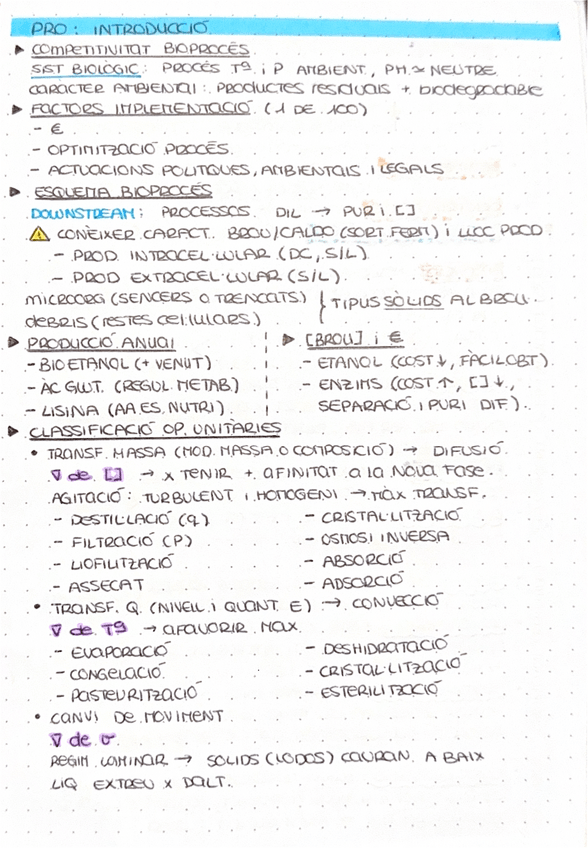 PRO: INTRODUCCIÓ
▶ COMPETITIVITAT BIOPROCÉS
SIST BIOLÒGIC: PROCÉS Tª i P AMBIENT, PH ≃ NEUTRE
CARÀCTER AMBIENTAL: PRODUCTES residuals + biodegradable
▶ FACTORS IMPLEMENTACIÓ (1 DE 100)
- €
- OPTIMITZACIÓ PROCÉS
- ACTUACIONS POLÍTIQUES, AMBIENTALS I LEGALS
▶ ESQUEMA BIOPROCÉS
DOWNSTREAM: PROCESSOS DIL → PUR i []
⚠ CONÈIXER CARACT. BROU/CALDO (SORT. FERM) i LLOC PROD
- PROD. INTRACEL·LULAR (DC, S/L)
- PROD EXTRACEL·LULAR (S/L)
microorg (SENCERS O TRENCATS) | TIPUS SÒLIDS AL BROU
debris (restes cel·lulars)
▶ PRODUCCIÓ ANUAL
- BIOETANOL (+ VENUT)
- ÀC GLUT. (REGUL. METAB)
- LISINA (AA ES. NUTRI)
▶ [BROU] i €
- ETANOL (COST ↓, FÀCIL OBT)
- ENZIMS (COST ↑, [] ↓,
SEPARACIÓ I PURI DIF)
▶ CLASSIFICACIÓ OP. UNITÀRIES
• TRANSF. MASSA (MOD. MASSA O COMPOSICIÓ) → DIFUSIÓ
∇ de [] → x TENIR + AFINITAT a la NOVA FASE.
AGITACIÓ: TURBULENT I HOMOGENI → MÀX TRANSF.
- DESTIL·LACIÓ (Q)
- FILTRACIÓ (P)
- LIOFILITZACIÓ
- ASSECAT
- CRISTAL·LITZACIÓ
- OSMOSI INVERSA
- ABSORCIÓ
- ADSORCIÓ
• TRANSF. Q. (NIVELL i QUANT. E) → CONVECCIÓ
∇ de Tª → AFAVORIR MAX
- EVAPORACIÓ
- CONGELACIÓ
- PASTEURITZACIÓ
- DESHIDRATACIÓ
- CRISTAL·LITZACIÓ
- ESTERILITZACIÓ
• CANVI DE MOVIMENT
∇ de σ
REGIM LAMINAR → SÒLIDS (LODOS) CAURAN A BAIX
LIQ EXTREU x DALT.